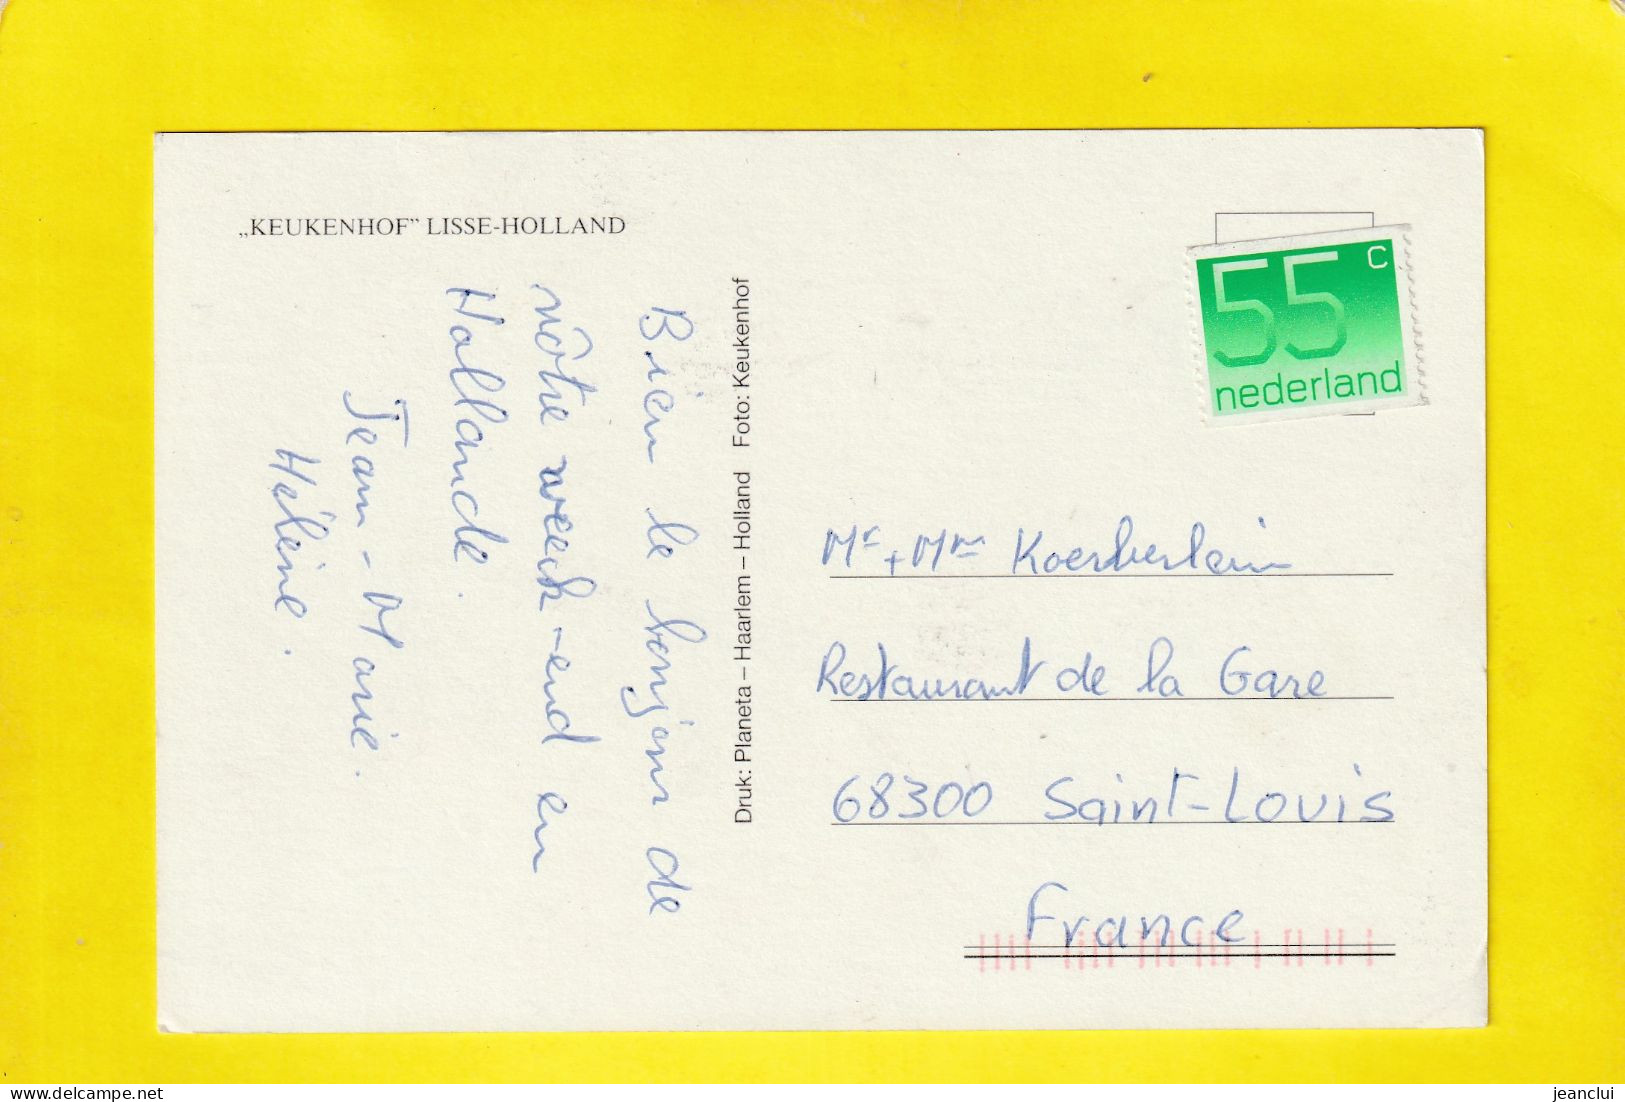 „KEUKENHOF” LISSE-HOLLAND
Bien le bonjour de
nôtre week-end en
Hollande.
Jean-Marie.
Hélène.
Druk: Planeta – Haarlem – Holland Foto: Keukenhof
55 c
nederland
Mr + Mme Koerberlein
Restaurant de la Gare
68300 Saint-Louis
France
jeanclu1